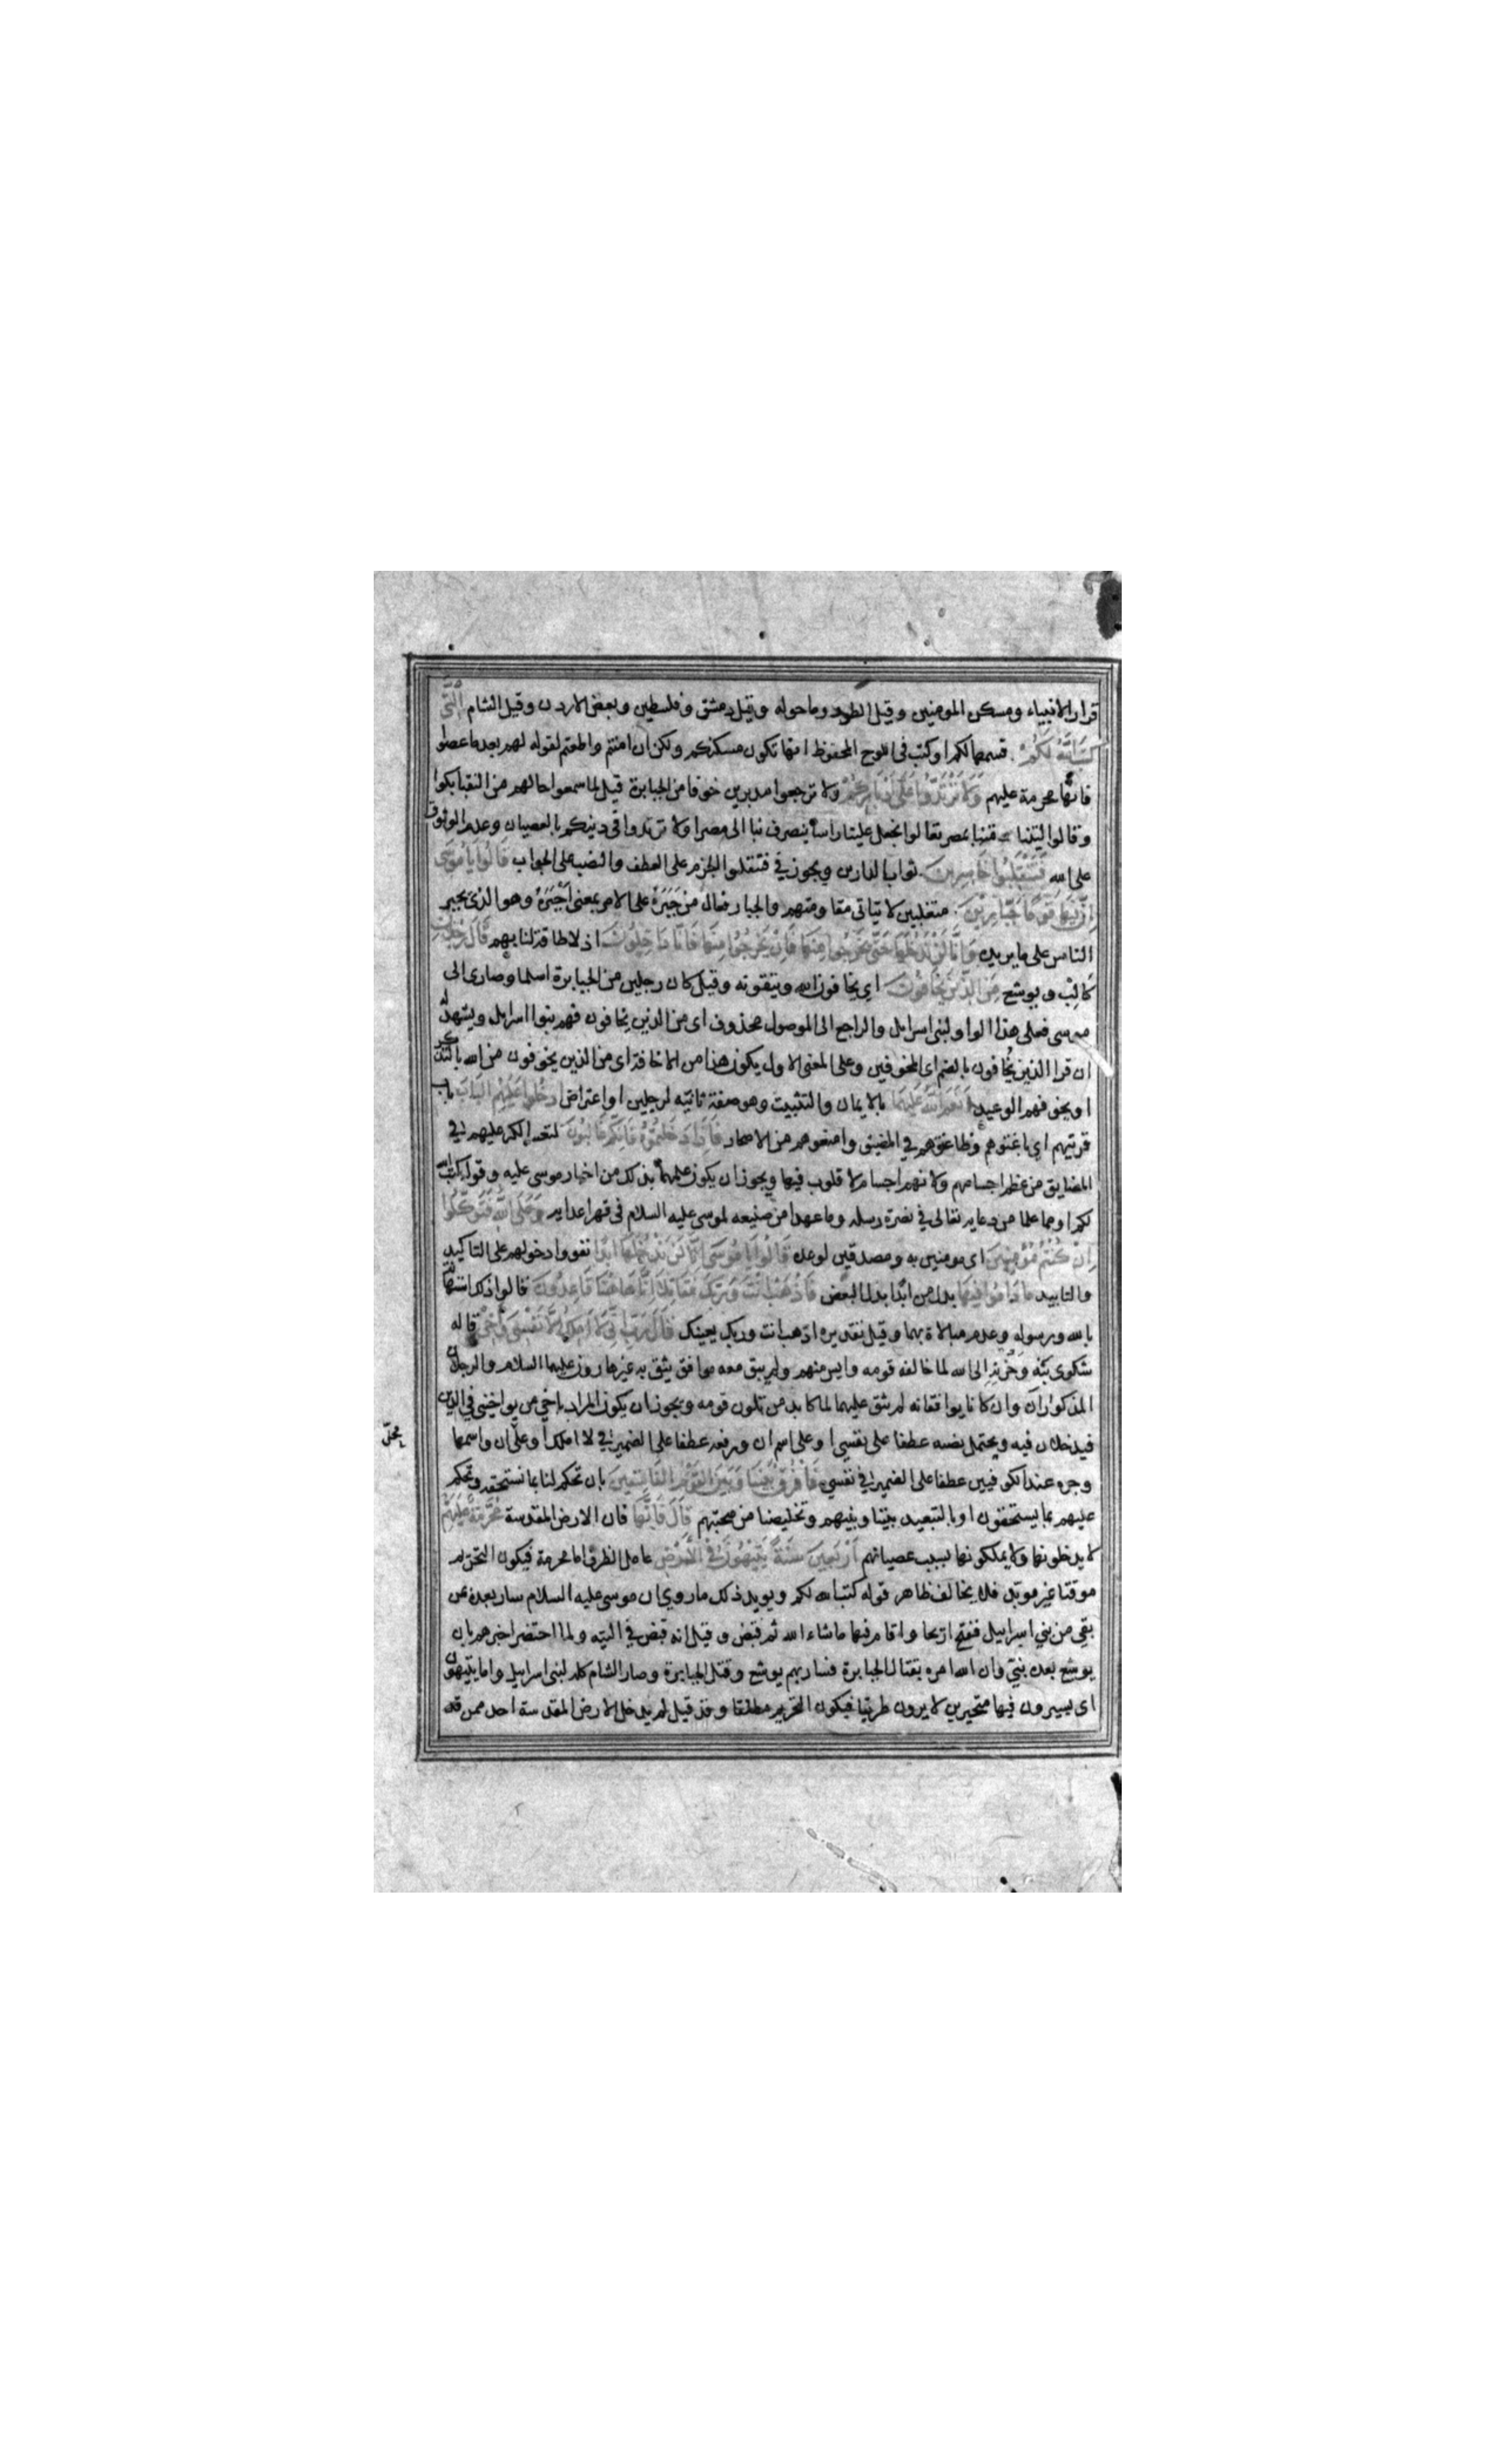 قرار الانبياء ومسكن المومنين وقيل الطور وما حوله وقيل دمشق وفلسطين وبعض الاردن وقيل الشام الَّتي
كتب الله لكم قسمها لكم او كتب فى اللوح المحفوظ انها تكون مسكنكم ولكن ان امنتم واطعتم لقوله لهم بعد ما عصوا
فانها محرمة عليهم ولا ترتدوا على ادباركم ولا ترجعوا مدبرين خوفا من الجبابرة قيل لما سمعوا حالهم من النقبا بكوا
وقالوا ليتنا متنا بمصر تعالوا نجعل علينا راسا ينصرف بنا الى مصر او لا ترتدوا فى دينكم بالعصيان وعدم الوثوق
على الله فتنقلبوا خاسرين ثواب الدارين ويجوز في فتنقلبوا الجزم على العطف والنصب على الجواب قالوا يا موسى
ان فيها قوما جبارين متغلبين لا يتاتى مقاومتهم والجبار فعال من جبره على الامر بمعنى اجبره وهو الذى يجبر
الناس على ما يريده وانا لن ندخلها حتى يخرجوا منها فان يخرجوا منها فانا داخلون اذ لا طاقة لنا بهم قال رجلان
كالب ويوشع من الذين يخافون اى يخافون الله ويتقونه وقيل كان رجلين من الجبابرة اسلما وصارا الى
موسى فعلى هذا الواو لبنى اسرائل والراجع الى الموصول محذوف اى من الذين يخافون فهم بنوا اسرايل ويشهد له
ان قرا الذين يُخافون بالضم اى المخوفين وعلى المعنى الاول يكون هذا من الاخافة اى من الذين يخوفون من الله بالتذكير
او يخوفهم الوعيد انعم الله عليهما بالايمان والتثبيت وهو صفة ثانيه لرجلين او اعتراض ادخلوا عليهم الباب باب
قريتهم اى باغتوهم وضاغطوهم في المضيق وامنعوهم من الاصحار فاذا دخلتموه فانكم غالبون لتعسر الكر عليهم في
المضايق من عظم اجسامهم ولانهم اجسام لا قلوب فيها ويجوز ان يكون علمهما بذلك من اخبار موسى عليه وقوله كتب الله
لكم او مما علما من عادته تعالى في نصرة رسله وما عهدا من صنيعه لموسى عليه السلام فى قهر اعدايه وعلى الله فتوكلوا
ان كنتم مؤمنين اى مومنين به ومصدقين لوعده قالوا يا موسى انا لن ندخلها ابدا نفوا دخولهم على التاكيد
والتابيد ما داموا فيها بدل من ابدا بدل البعض فاذهب انت وربك فقاتلا انا هاهنا قاعدون قالوا ذلك استهانة
بالله ورسوله وعدم مبالاة بهما وقيل تقديره اذهب انت وربك يعينك قال رب انى لا املك الا نفسى واخى قاله
شكوى بثه وحزنه الى الله لما خالفه قومه وايس منهم ولم يبق معه موافق يثق به غير هارون عليهما السلام والرجلان
المذكوران وان كانا يوافقانه لم يثق عليهما لما كابد من تلون قومه ويجوز ان يكون المراد باخى من يواخينى في الدين
فيدخلان فيه ويحتمل نصبه عطفا على نفسي او على اسم ان ورفعه عطفا على الضمير في لا املك او على ان واسمها
وجره عند الكوفيين عطفا على الضمير في نفسي فافرق بيننا وبين القوم الفاسقين بان تحكم لنا بما نستحقه وتحكم
عليهم بما يستحقون او بالتبعيد بيننا وبينهم وتخليصنا من صحبتهم قال فانها فان الارض المقدسة محرمة عليهم
لا يدخلونها ولا يملكونها بسبب عصيانهم اربعين سنة يتيهون في الارض عامل الظرف اما محرمة فيكون التحريم
موقتا غير موبد فلا يخالف ظاهر قوله كتب الله لكم ويويد ذلك ما روي ان موسى عليه السلام سار بعده بمن
بقي من بني اسرائيل ففتح اريحا واقام فيها ماشاء الله ثم قبض وقيل انه قبض في التيه ولما احتضر اخبرهم بان
يوشع بعده نبي وان الله امره بقتال الجبابرة فسار بهم يوشع وقتل الجبابرة وصار الشام كله لبنى اسرايل واما يتيهون
اى يسيرون فيها متحيرين لا يرون طريقا فيكون التحريم مطلقا وقد قيل لم يدخل الارض المقدسة احد ممن قد
محل